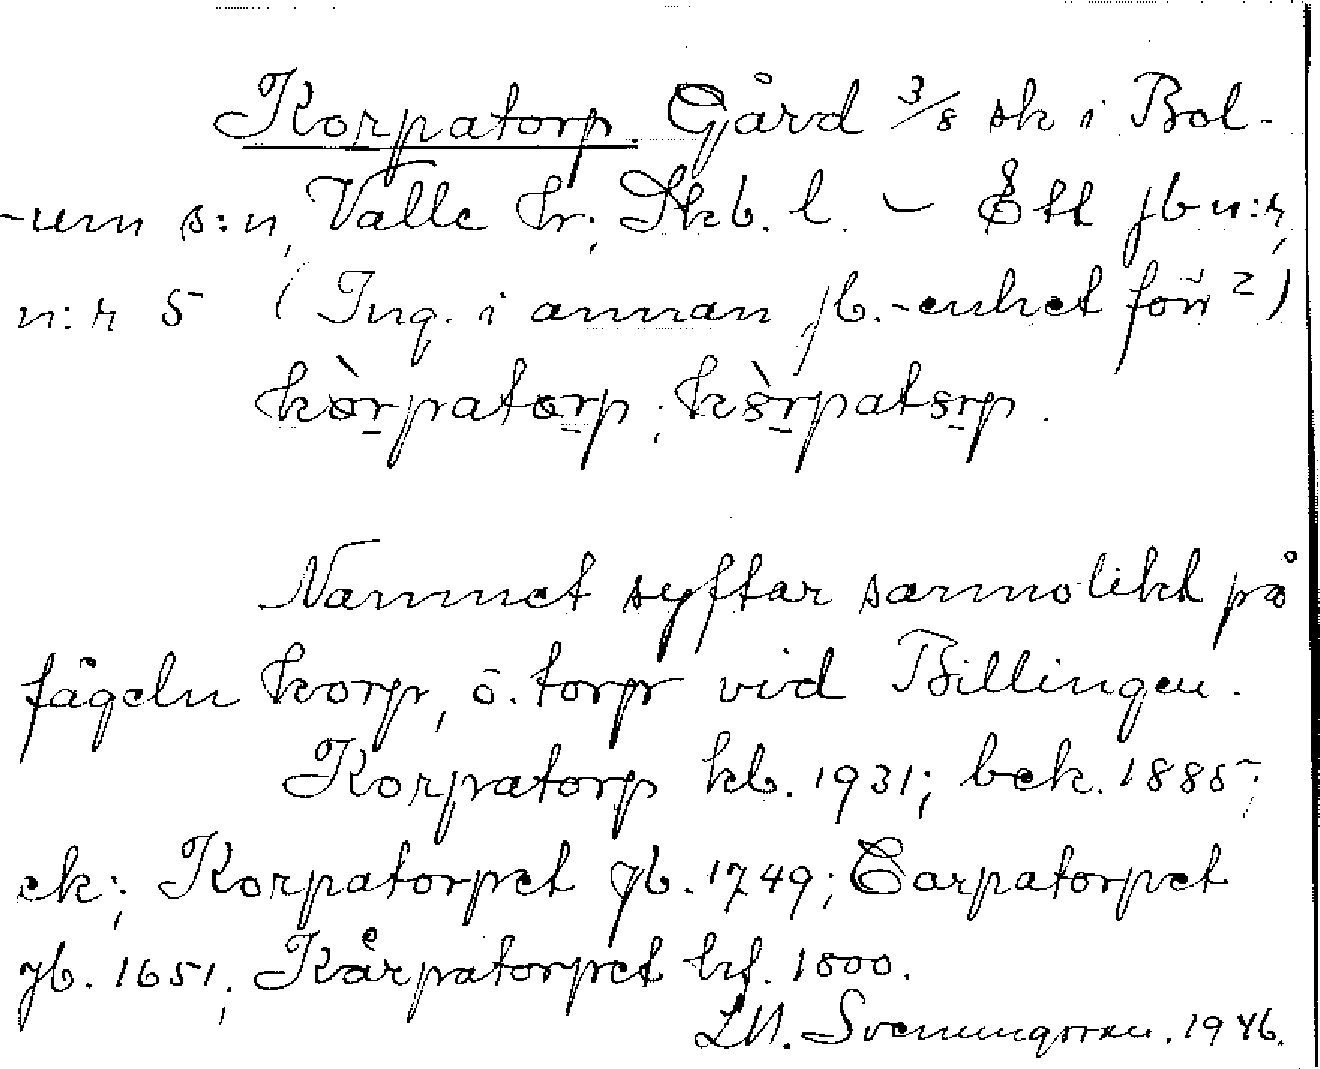 Korpatorp. Gård 3/8 sk i Bol-
-um s:n, Valle hr; Skb. l. – Ett jb n:r,
n:r 5 (Ing. i annan jb.-enhet förr 2)
kòrpatorp; kòrpatorp.
Namnet syftar sannolikt på
fågeln korp, ö. torp vid Billingen.
Korpatorp kb. 1931; bek. 1885;
ek; Korpatorpet jb. 1749; Carpatorpet
jb. 1651; Kårpatorpet hf. 1800.
Svenungsson. 1946.